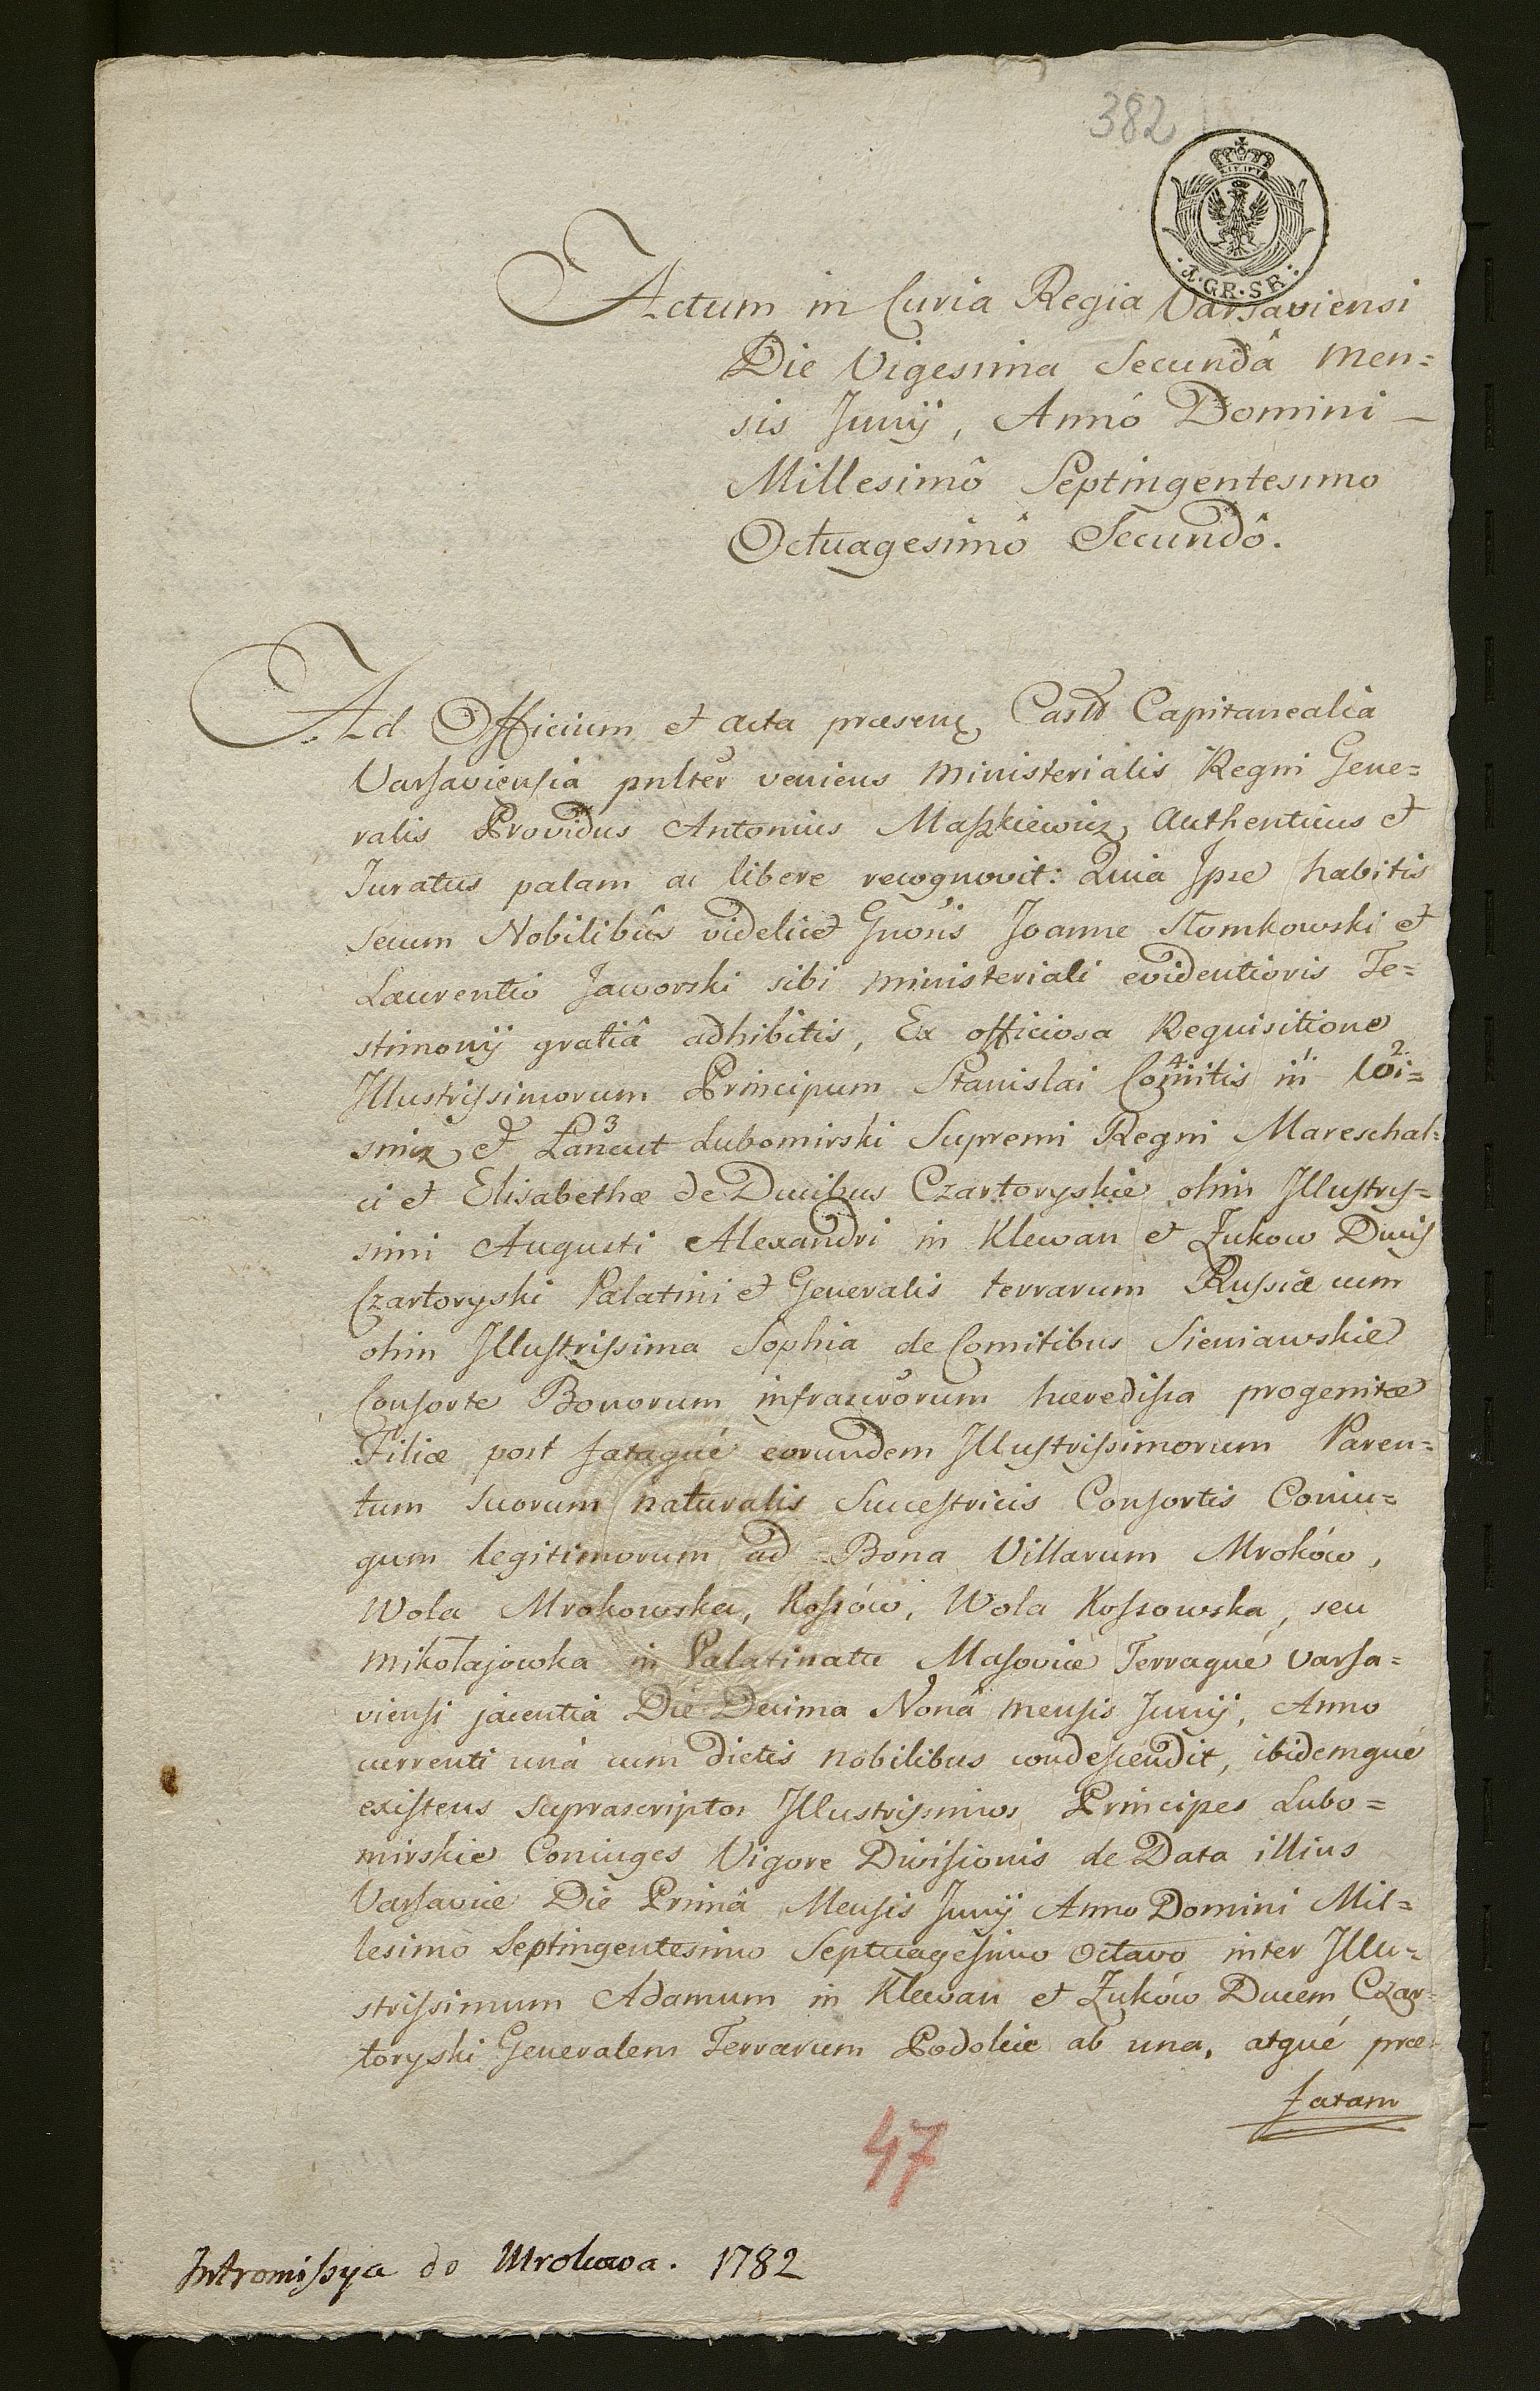 382
4·GR·SR·
Actum in Curia Regia Varsaviensi
Die Vigesima Secundâ Men=
sis Junij, Annó Domini —
Millesimô Septingentesimo
Octuagesimô Secundô.
Ad Officium et acta præsens Castr Capitanealia
Varsaviensia pnlter veniens Ministerialis Regni Gene=
ralis Providus Antonius Maszkiewicz Authenticus et
Juratus palam ac libere recognovit: Quia Ipse habitis
secum Nobilibûs videlicet Gnosis Joanne Słomkowski et
Laurentio Jaworski sibi ministeriali evidentioris Te=
stimonij gratiâ adhibitis, Ex officiosa Requisitione
Illustrissimorum Principum Stanislai Comitis in Wi=
snicz et Łancut Lubomirski Supremi Regni Mareschal=
ci et Elisabethæ de Ducibus Czartoryskie olim Illustris=
simi Augusti Alexandri in Klewan et Żukow Ducis
Czartoryski Palatini et Generalis terrarum Russiæ cum
olim Illustrissima Sophia de Comitibus Sieniawskie
Consorte Bonorum infrascrorum hæredissa progenitæ
Filiæ post fataqué eorundem Illustrissimorum Paren=
tum suorum naturalis Successtricis Consortis Coniu=
gum legitimorum ad Bona Villarum Mroków,
Wola Mrokowska, Kossów, Wola Kossowska, seu
Mikołajowka in Palatinatu Masoviæ Terraqué Varsa=
viensi jacentia Die Decima Nonâ mensis Junij, Anno
currenti unà cum dictis nobilibus condescendit, ibidemqué
existens suprascriptos Illustrissimos Principes Lubo=
mirskie Coniuges Vigore Divisionis de Data illius
Varsaviæ Die Primâ Mensis Junij Anno Domini Mil=
lesimo Septingentesimo Septuagesimo Octavo inter Illu=
strissimum Adamum in Klewan et Żuków Ducem Czar=
toryski Generalem Terrarum Podoliæ ab una, atqué præ=
fatam
47
Intromissya do Mrokowa. 1782